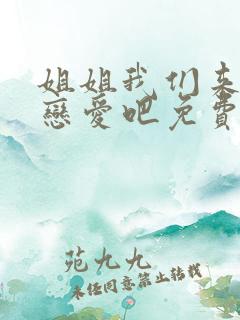 姐姐我们来
戀愛吧免費
苑九九
未经同意禁止转载